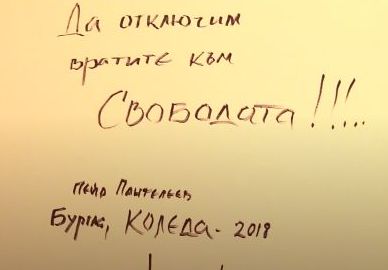 Да отключим
вратите към
Свободата!!!...
Пантелеев
Бургас, КОЛЕДА - 2018